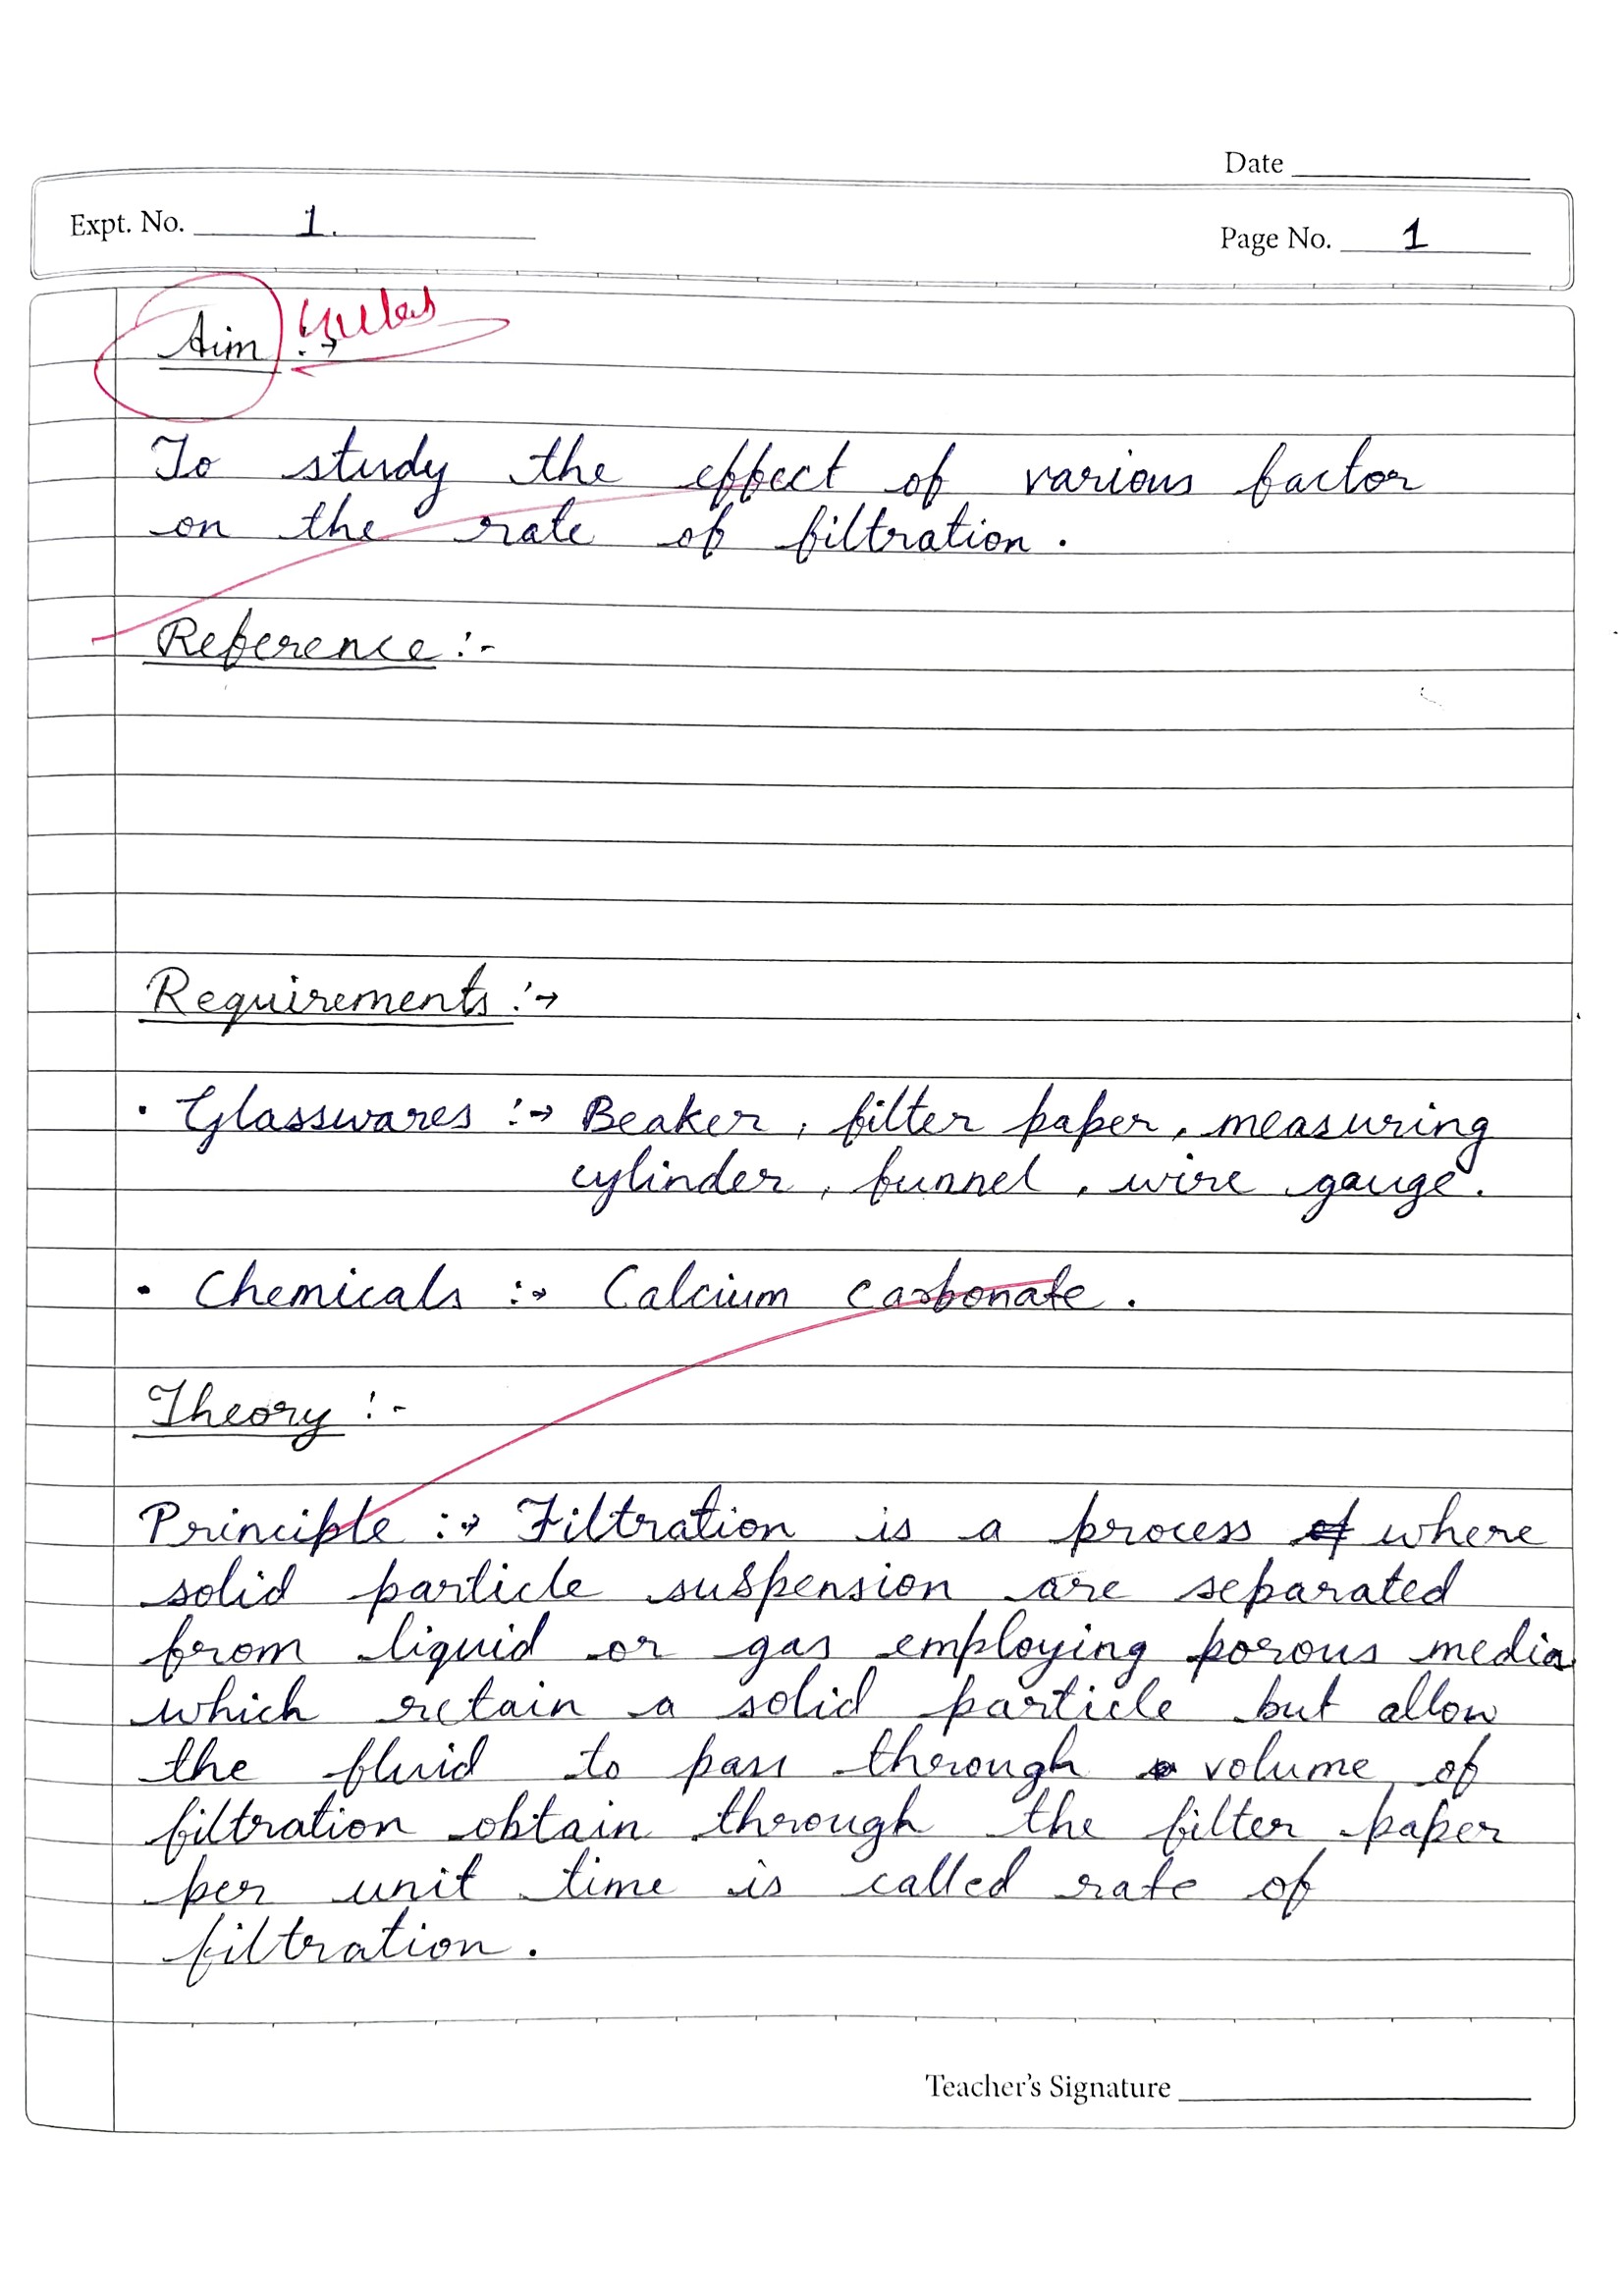 Date
Expt. No. 1.
Page No. 1
Aim :→
To study the effect of various factor
on the rate of filtration.
Reference :-
Requirements :→
• Glasswares :→ Beaker, filter paper, measuring
cylinder, funnel, wire gauge.
• Chemicals :→ Calcium carbonate.
Theory :-
Principle :→ Filtration is a process of where
solid particle suspension are separated
from liquid or gas employing porous media
which retain a solid particle but allow
the fluid to pass through volume of
filtration obtain through the filter paper
per unit time is called rate of
filtration.
Teacher's Signature